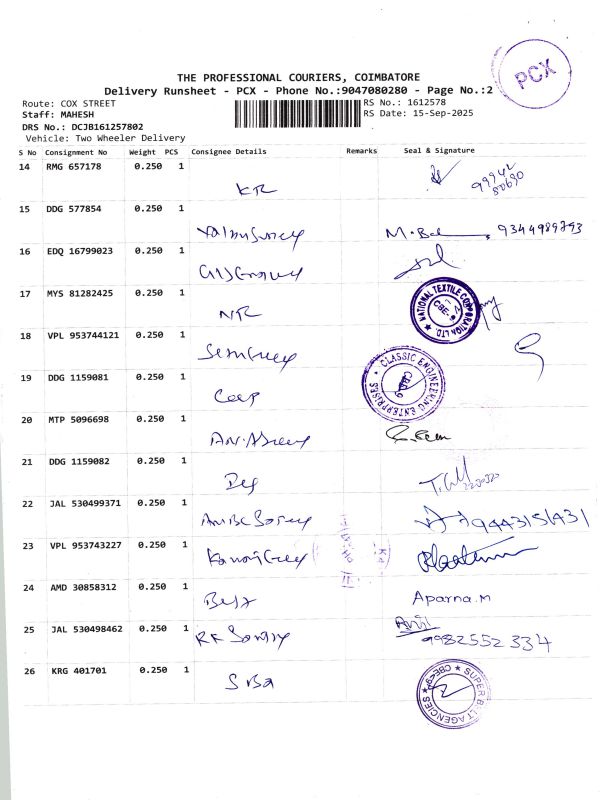 PCX
THE PROFESSIONAL COURIERS, COIMBATORE
Delivery Runsheet - PCX - Phone No.:9047080280 - Page No.:2
Route: COX STREET
RS No.: 1612578
Staff: MAHESH
RS Date: 15-Sep-2025
DRS No.: DCJB161257802
Vehicle: Two Wheeler Delivery
S No Consignment No Weight PCS Consignee Details Remarks Seal & Signature
14 RMG 657178 0.250 1
KR
99942
80690
15 DDG 577854 0.250 1
M. 9344989793
16 EDQ 16799023 0.250 1
17 MYS 81282425 0.250 1
NTC
NATIONAL TEXTILE CORPORATION LTD.
CBE
18 VPL 953744121 0.250 1
19 DDG 1159081 0.250 1
CLASSIC ENGINEERING ENTERPRISES
20 MTP 5096698 0.250 1
21 DDG 1159082 0.250 1
22 JAL 530499371 0.250 1
9443151431
23 VPL 953743227 0.250 1
24 AMD 30858312 0.250 1
Aparna.M
25 JAL 530498462 0.250 1
9982552334
26 KRG 401701 0.250 1
SBA
SUPER BELT AGENCIES
CBE-9